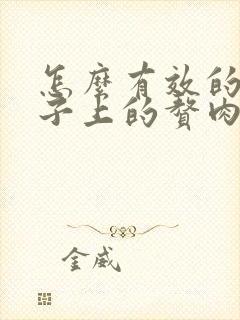 怎麼有效的
子上的贅肉
金威